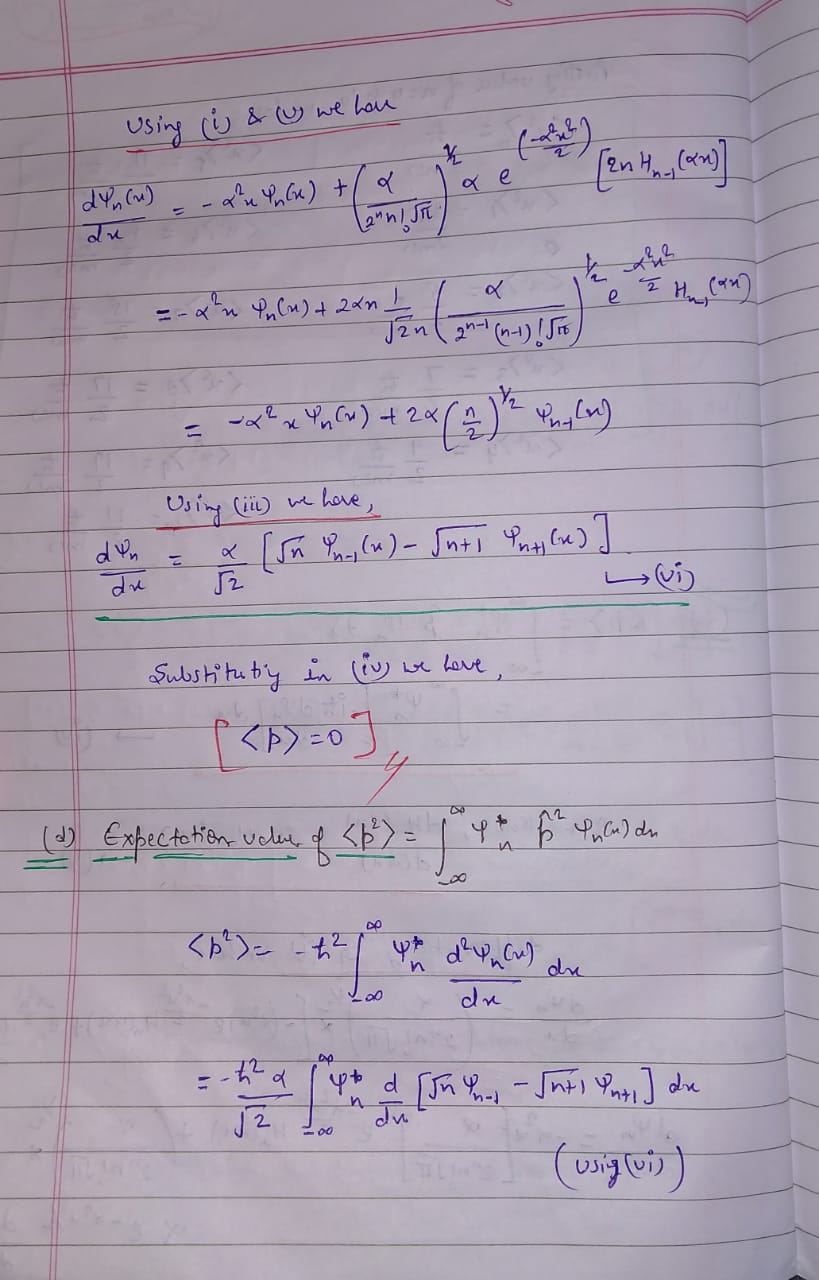 Using (i) & (v) we have
dψₙ(x)/dx = - α²x ψₙ(x) + (α/2ⁿn!√π)^½ α e^(-α²x²/2) [2n Hₙ₋₁(αx)]
= - α²x ψₙ(x) + 2αn 1/√2n (α/2ⁿ⁻¹(n-1)!√π)^½ e^-α²x²/2 Hₙ₋₁(αx)
= -α²x ψₙ(x) + 2α(n/2)^½ ψₙ₋₁(x)
Using (iii) we have,
dψₙ/dx = α/√2 [√n ψₙ₋₁(x) - √n+1 ψₙ₊₁(x)]
↳(vi)
Substitutiy in (iv) we have,
[<p>=0]
(d) Expectation value of <p²> = ∫_-∞^∞ ψₙ* p̂² ψₙ(x) dx
<p²> = -ħ² ∫_-∞^∞ ψₙ* d²ψₙ(x)/dx dx
= -ħ²α/√2 ∫_-∞^∞ ψₙ* d/dx [√n ψₙ₋₁ - √n+1 ψₙ₊₁] dx
(usig (vi))